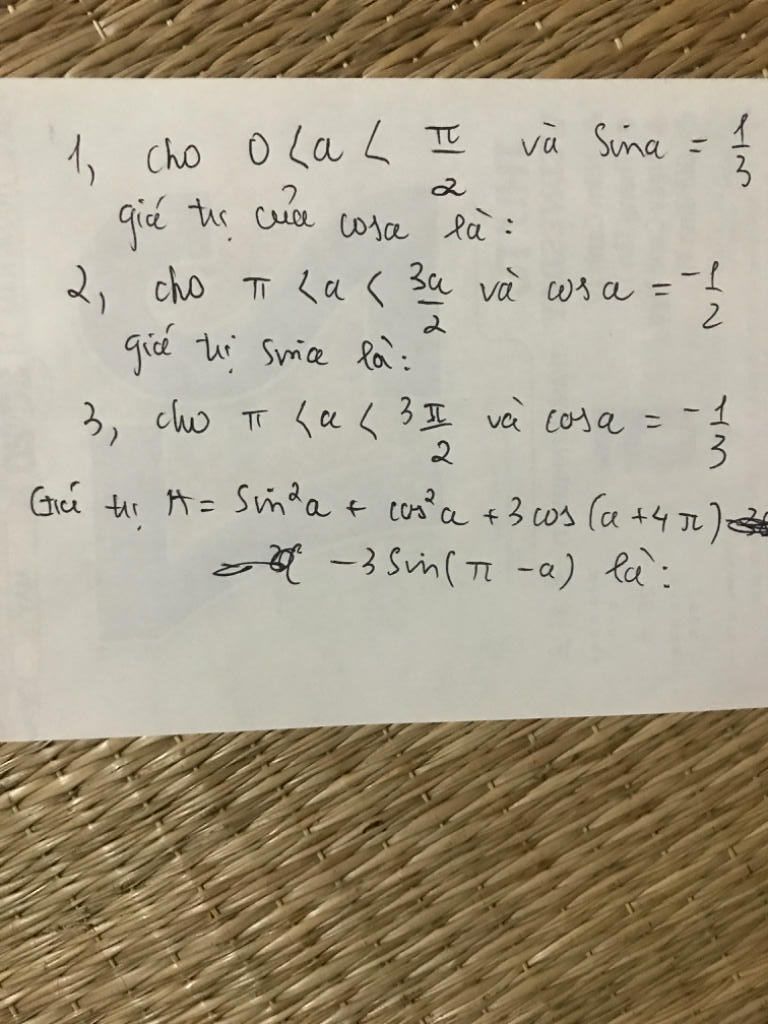 1, cho 0 < a < π/2 và sina = 1/3
giá trị của cosa là:
2, cho π < a < 3a/2 và cosa = -1/2
giá trị sina là:
3, cho π < a < 3π/2 và cosa = -1/3
Giá trị A = Sin²a + cos²a + 3cos(a+4π)
-3Sin(π -a) là: